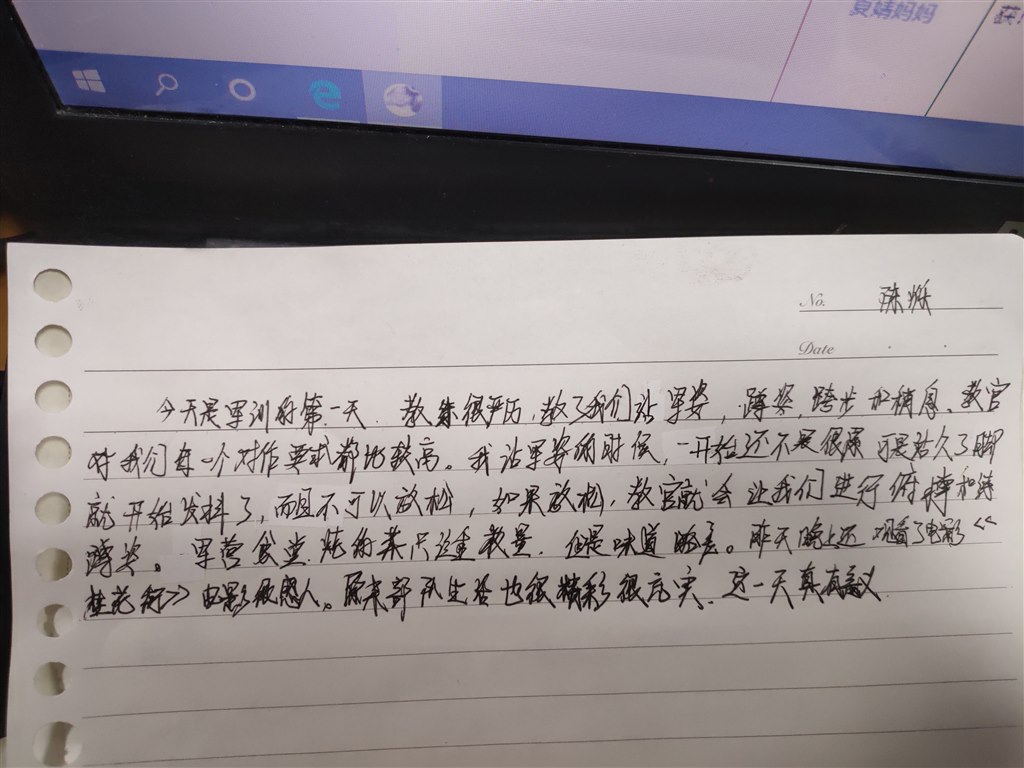 夏婧妈妈
获
No. 陈烁
Date
今天是军训的第一天.教练很严历,教了我们站军姿,蹲姿,跨步和稍息.教官
对我们每一个对作要式都比较高。我站军姿的时候,一开始还不是很累可是站久了脚
就开始发抖了,而且不可以放松,如果放松,教官就会让我们进行俯撑和持
蹲姿。军营食堂炖的菜只注重数量.但是味道略差。昨天晚上还观看了电影《
桂花街》电影很感人。原来部队生活也很精彩很充实.这一天真有意义